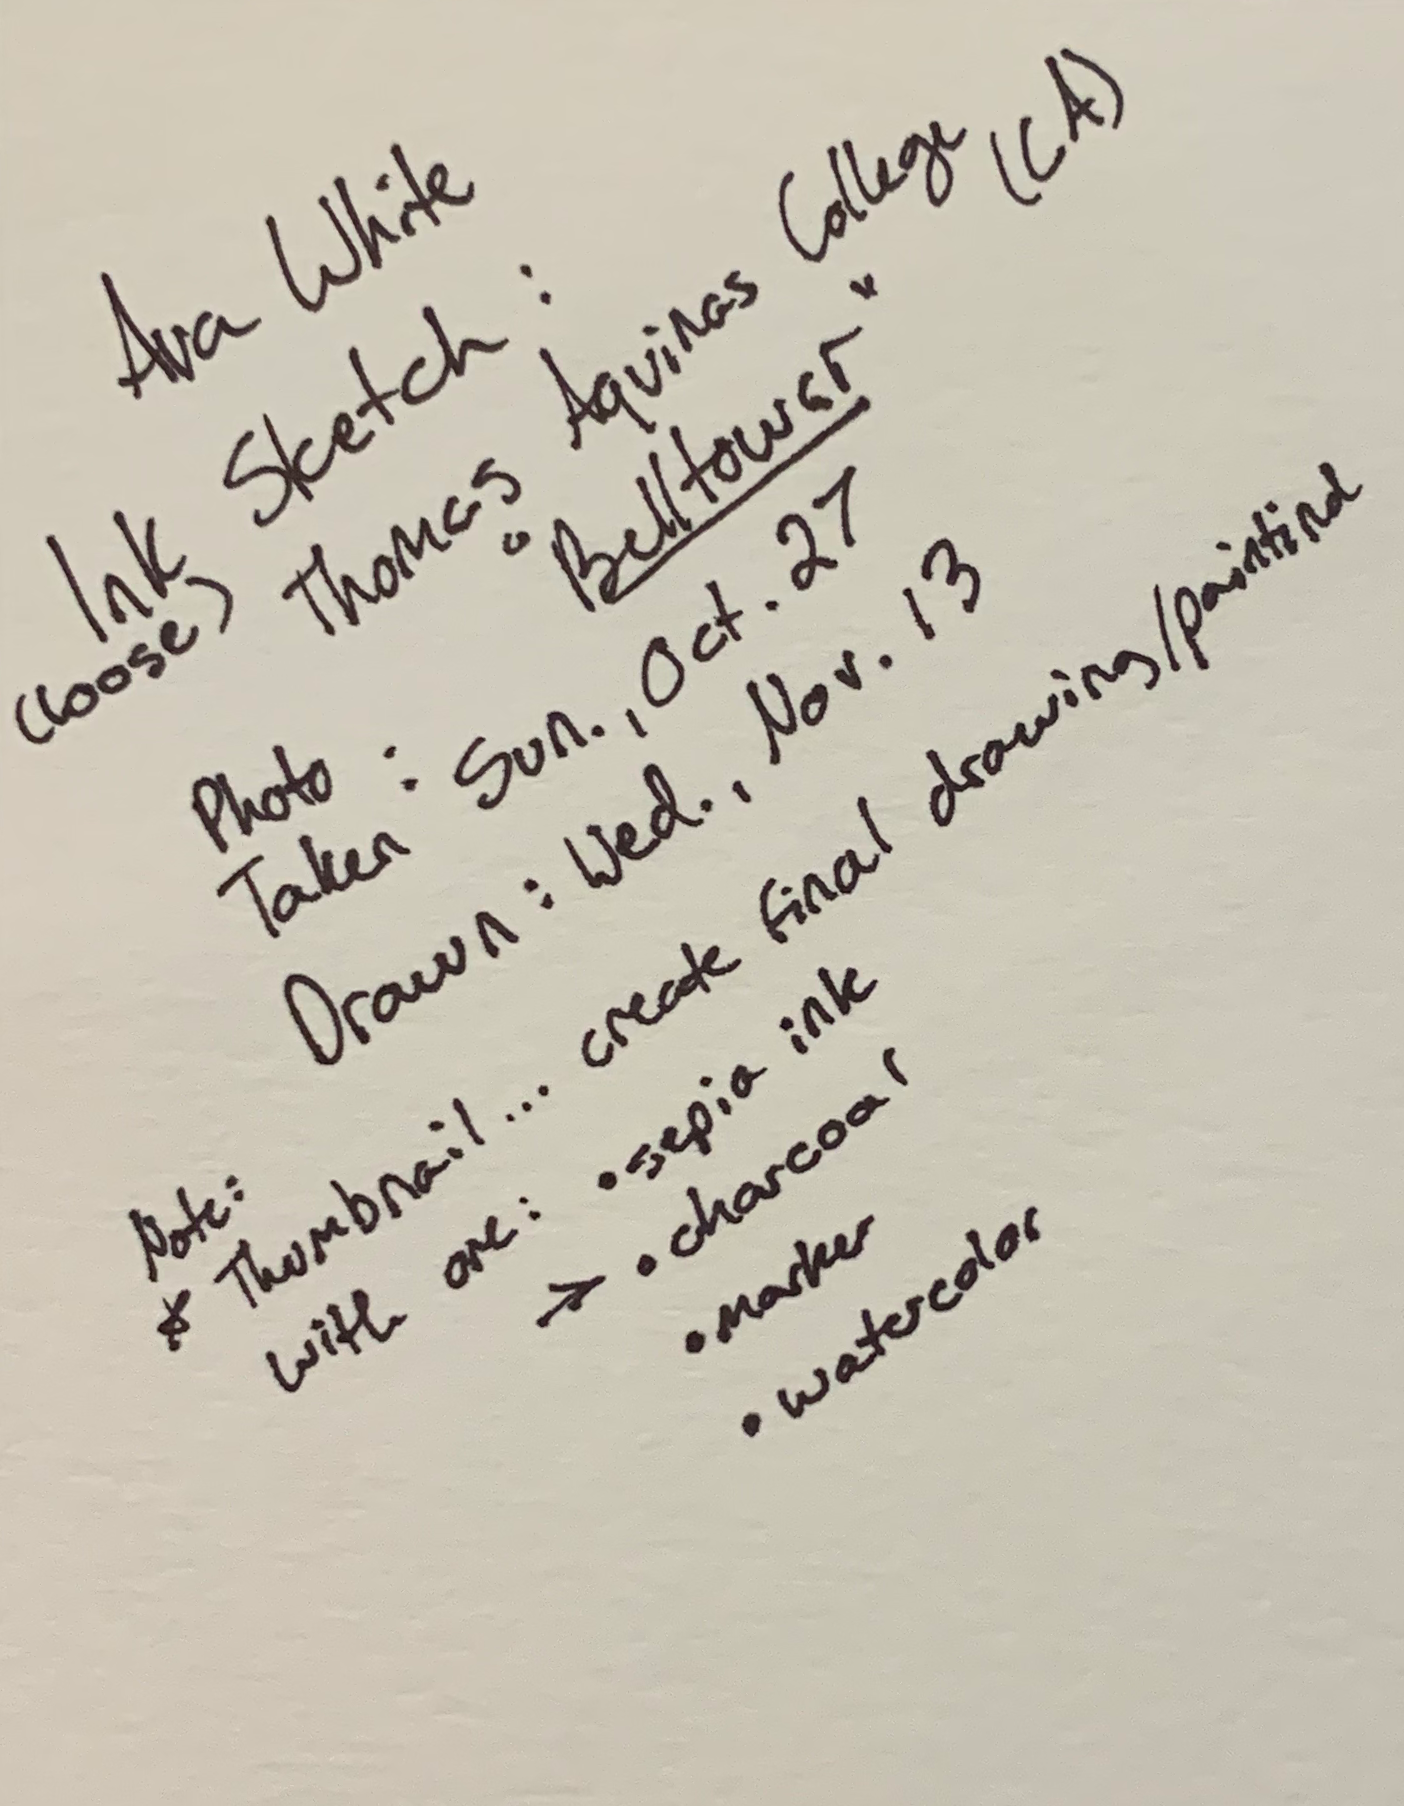 Ava White
Ink Sketch:
(loose) Thomas Aquinas College (CA)
"Belltower"
Photo Taken: Sun., Oct. 27
Drawn: Wed., Nov. 13
Note:
* Thumbnail... create final drawing/paintind
with one: • sepia ink
> • charcoal
• marker
• watercolor